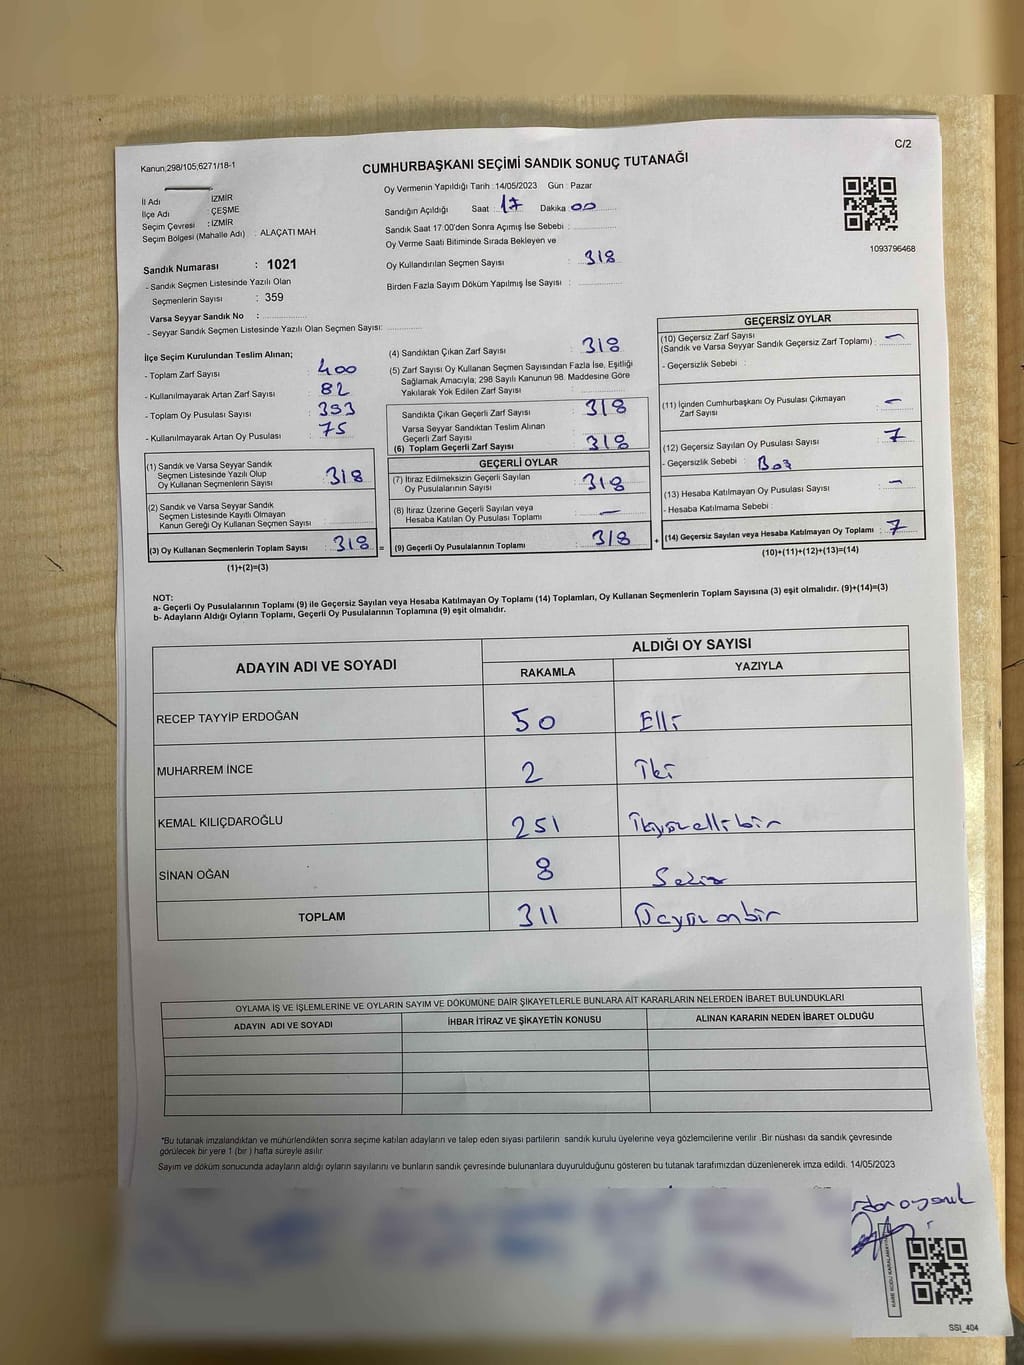 C/2
Kanun;298/105;6271/18-1
CUMHURBAŞKANI SEÇİMİ SANDIK SONUÇ TUTANAĞI
İl Adı İZMİR
İlçe Adı : ÇEŞME
Seçim Çevresi : İZMİR
Seçim Bölgesi (Mahalle Adı) : ALAÇATI MAH
Sandık Numarası : 1021
- Sandık Seçmen Listesinde Yazılı Olan
Seçmenlerin Sayısı : 359
Varsa Seyyar Sandık No :
- Seyyar Sandık Seçmen Listesinde Yazılı Olan Seçmen Sayısı:
Oy Vermenin Yapıldığı Tarih : 14/05/2023 Gün : Pazar
Sandığın Açıldığı Saat : 17 Dakika : 00
Sandık Saat 17:00'den Sonra Açımış İse Sebebi :
Oy Verme Saati Bitiminde Sırada Bekleyen ve
Oy Kullandırılan Seçmen Sayısı : 318
Birden Fazla Sayım Döküm Yapılmış İse Sayısı :
1093796468
İlçe Seçim Kurulundan Teslim Alınan;
- Toplam Zarf Sayısı : 400
- Kullanılmayarak Artan Zarf Sayısı : 82
- Toplam Oy Pusulası Sayısı : 393
- Kullanılmayarak Artan Oy Pusulası : 75
(1) Sandık ve Varsa Seyyar Sandık
Seçmen Listesinde Yazılı Olup
Oy Kullanan Seçmenlerin Sayısı : 318
(2) Sandık ve Varsa Seyyar Sandık
Seçmen Listesinde Kayıtlı Olmayan
Kanun Gereği Oy Kullanan Seçmen Sayısı :
(3) Oy Kullanan Seçmenlerin Toplam Sayısı : 318 =
(1)+(2)=(3)
(4) Sandıktan Çıkan Zarf Sayısı : 318
(5) Zarf Sayısı Oy Kullanan Seçmen Sayısından Fazla İse, Eşitliği
Sağlamak Amacıyla; 298 Sayılı Kanunun 98. Maddesine Göre
Yakılarak Yok Edilen Zarf Sayısı :
Sandıkta Çıkan Geçerli Zarf Sayısı : 318
Varsa Seyyar Sandıktan Teslim Alınan
Geçerli Zarf Sayısı :
(6) Toplam Geçerli Zarf Sayısı : 318
GEÇERLİ OYLAR
(7) İtiraz Edilmeksizin Geçerli Sayılan
Oy Pusulalarının Sayısı : 318
(8) İtiraz Üzerine Geçerli Sayılan veya
Hesaba Katılan Oy Pusulası Toplamı : —
(9) Geçerli Oy Pusulalarının Toplamı : 318 +
GEÇERSİZ OYLAR
(10) Geçersiz Zarf Sayısı
(Sandık ve Varsa Seyyar Sandık Geçersiz Zarf Toplamı) : —
- Geçersizlik Sebebi :
(11) İçinden Cumhurbaşkanı Oy Pusulası Çıkmayan
Zarf Sayısı : —
(12) Geçersiz Sayılan Oy Pusulası Sayısı : 7
- Geçersizlik Sebebi :
(13) Hesaba Katılmayan Oy Pusulası Sayısı : —
- Hesaba Katılmama Sebebi :
(14) Geçersiz Sayılan veya Hesaba Katılmayan Oy Toplamı : 7
(10)+(11)+(12)+(13)=(14)
NOT:
a- Geçerli Oy Pusulalarının Toplamı (9) ile Geçersiz Sayılan veya Hesaba Katılmayan Oy Toplamı (14) Toplamları, Oy Kullanan Seçmenlerin Toplam Sayısına (3) eşit olmalıdır. (9)+(14)=(3)
b- Adayların Aldığı Oyların Toplamı, Geçerli Oy Pusulalarının Toplamına (9) eşit olmalıdır.
ADAYIN ADI VE SOYADI ALDIĞI OY SAYISI
RAKAMLA YAZIYLA
RECEP TAYYİP ERDOĞAN 50 Elli
MUHARREM İNCE 2 İki
KEMAL KILIÇDAROĞLU 251 İkiyüzellibir
SİNAN OĞAN 8 Sekiz
TOPLAM 311 Üçyüz onbir
OYLAMA İŞ VE İŞLEMLERİNE VE OYLARIN SAYIM VE DÖKÜMÜNE DAİR ŞİKAYETLERLE BUNLARA AİT KARARLARIN NELERDEN İBARET BULUNDUKLARI
ADAYIN ADI VE SOYADI İHBAR İTİRAZ VE ŞİKAYETİN KONUSU ALINAN KARARIN NEDEN İBARET OLDUĞU
*Bu tutanak imzalandıktan ve mühürlendikten sonra seçime katılan adayların ve talep eden siyasi partilerin sandık kurulu üyelerine veya gözlemcilerine verilir .Bir nüshası da sandık çevresinde
görülecek bir yere 1 (bir ) hafta süreyle asılır
Sayım ve döküm sonucunda adayların aldığı oyların sayılarını ve bunların sandık çevresinde bulunanlara duyurulduğunu gösteren bu tutanak tarafımızdan düzenlenerek imza edildi. 14/05/2023
SSI_404